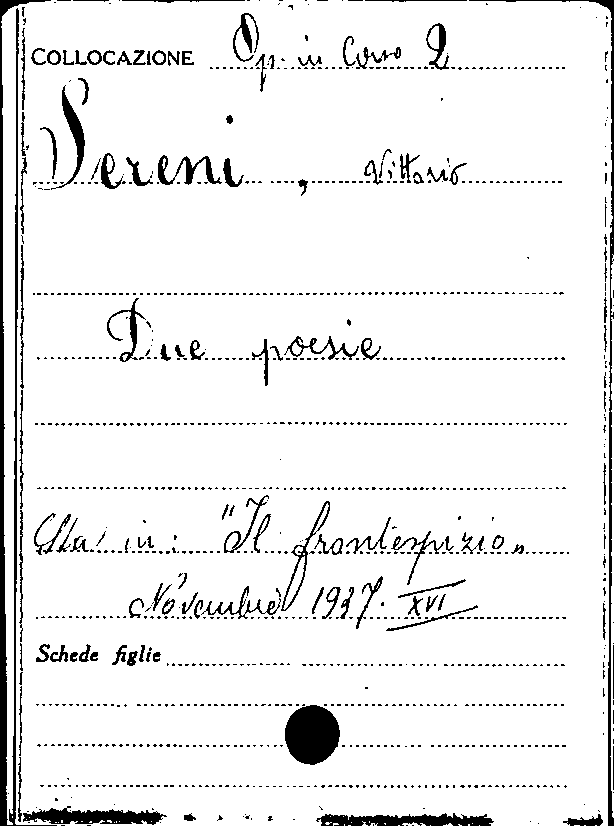 COLLOCAZIONE Op. in Corso 2
Sereni, Vittorio
Due poesie
Sta in: "Il frontespizio"
Novembre 1937. XVI
Schede figlie